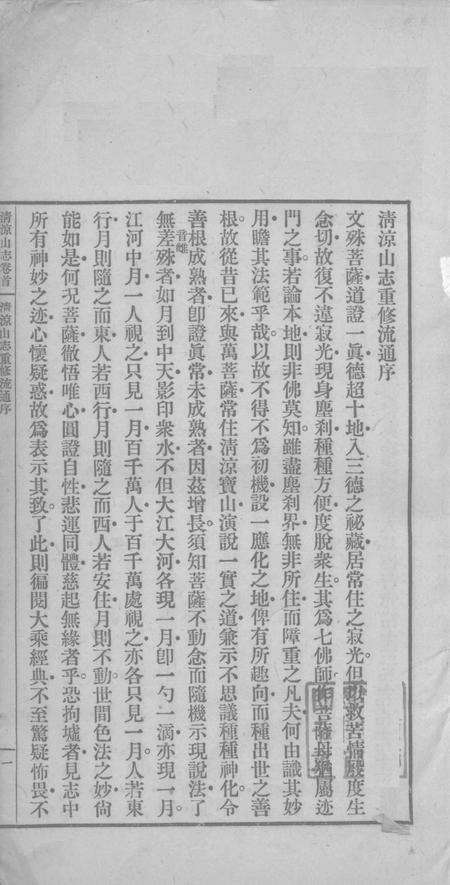 清涼山志重修流通序
文殊菩薩道證一眞德超十地入三德之祕藏居常住之寂光但以救苦情殷度生
念切故復不違寂光現身塵刹種種方便度脫衆生其爲七佛師作菩薩母猶屬迹
門之事若論本地則非佛莫知雖盡塵刹界無非所住而障重之凡夫何由識其妙
用瞻其法範乎哉以故不得不爲初機設一應化之地俾有所趣向而種出世之善
根故從昔已來與萬菩薩常住清涼寶山演說一實之道兼示不思議種種神化令
善根成熟者卽證眞常未成熟者因茲增長須知菩薩不動念而隨機示現說法了
音雖
無差殊者如月到中天影印衆水不但大江大河各現一月卽一勺一滴亦現一月
江河中月一人視之只見一月百千萬人于百千萬處視之亦各只見一月人若東
行月則隨之而東人若西行月則隨之而西人若安住月則不動世間色法之妙尙
能如是何况菩薩徹悟唯心圓證自性悲運同體慈起無緣者乎恐拘墟者見志中
所有神妙之迹心懷疑惑故爲表示其致了此則徧閱大乘經典不至驚疑怖畏不
清涼山志卷首 清涼山志重修流通序
一